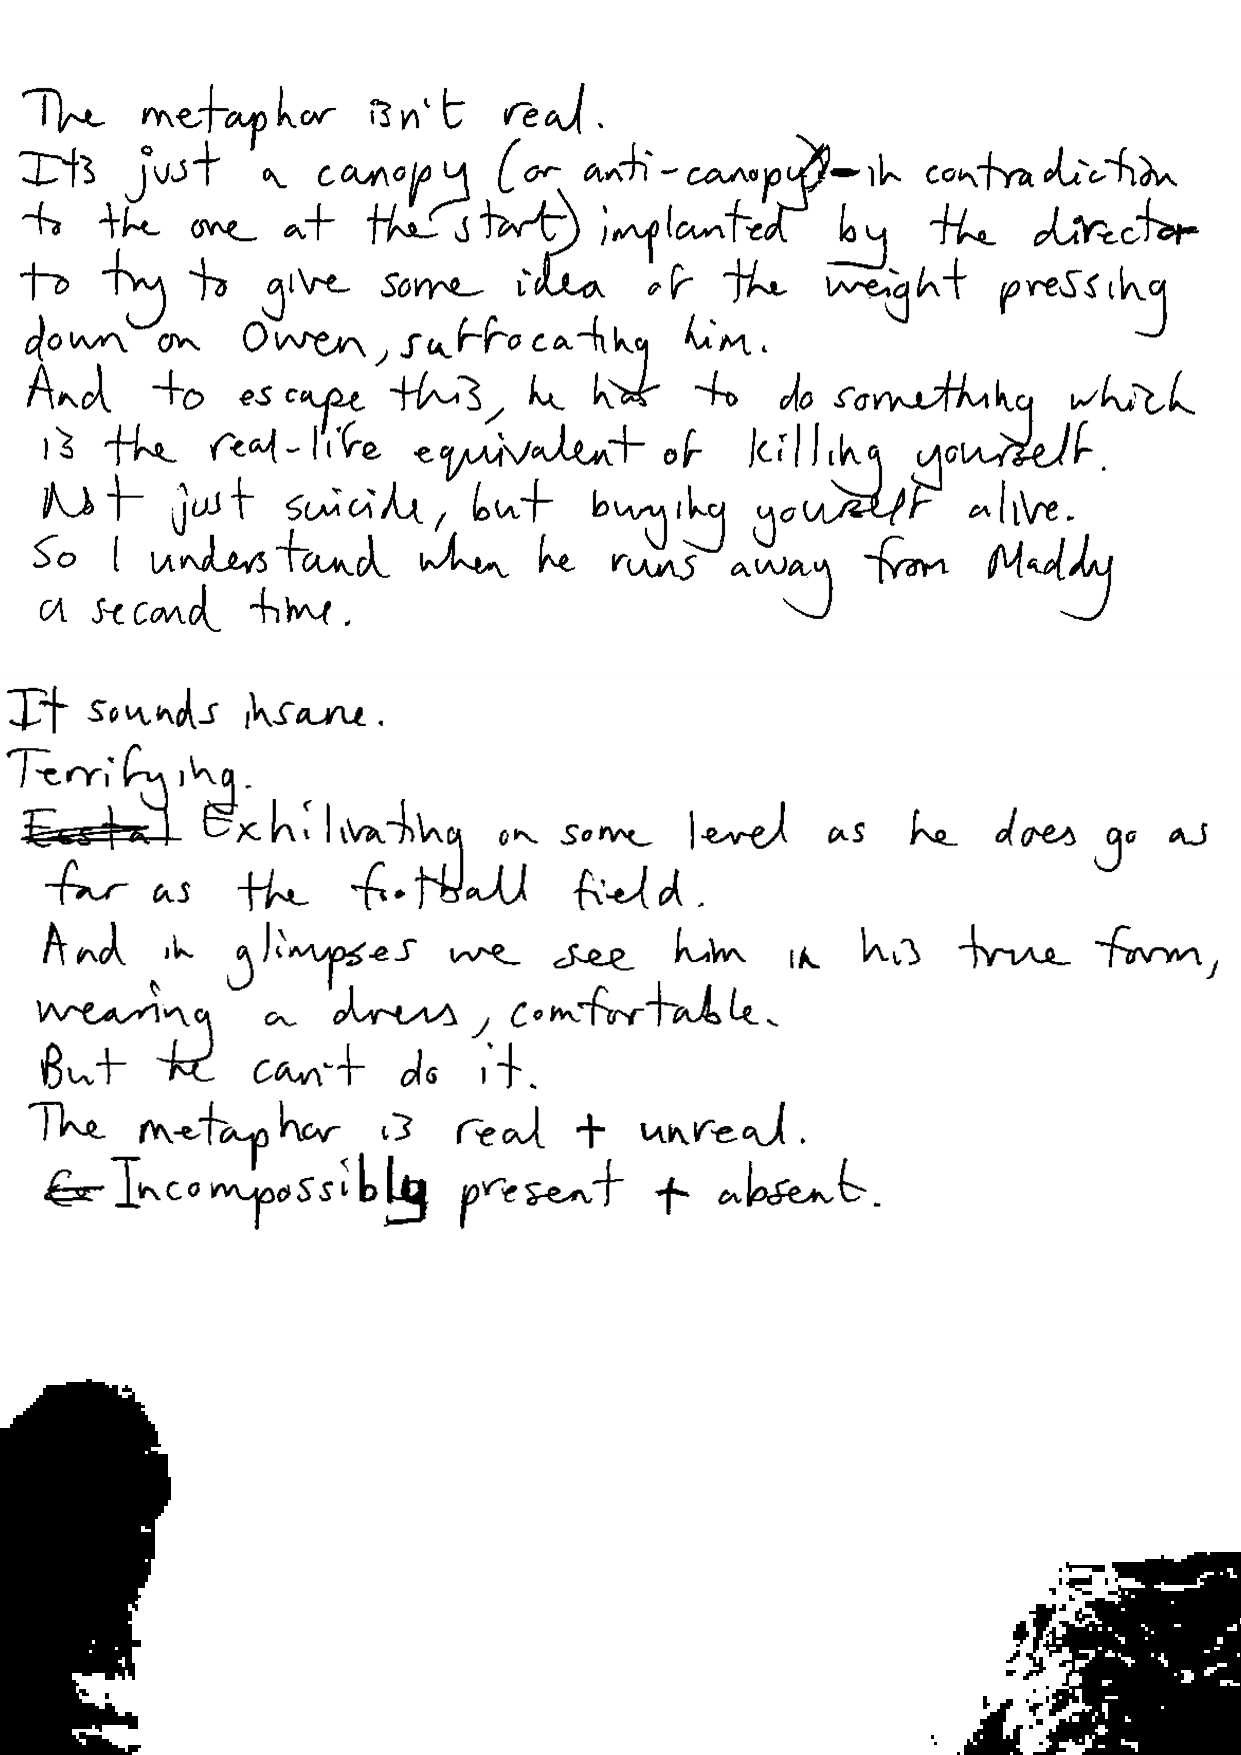 The metaphor isn't real.
It's just a canopy (or anti-canopy - in contradiction
to the one at the start) implanted by the director
to try to give some idea of the weight pressing
down on Owen, suffocating him.
And to escape this, he has to do something which
is the real-life equivalent of killing yourself.
Not just suicide, but burying yourself alive.
So I understand when he runs away from Maddy
a second time.
It sounds insane.
Terrifying.
Exhilirating on some level as he does go as
far as the football field.
And in glimpses we see him in his true form,
wearing a dress, comfortable.
But he can't do it.
The metaphor is real + unreal.
Incompossibly present + absent.